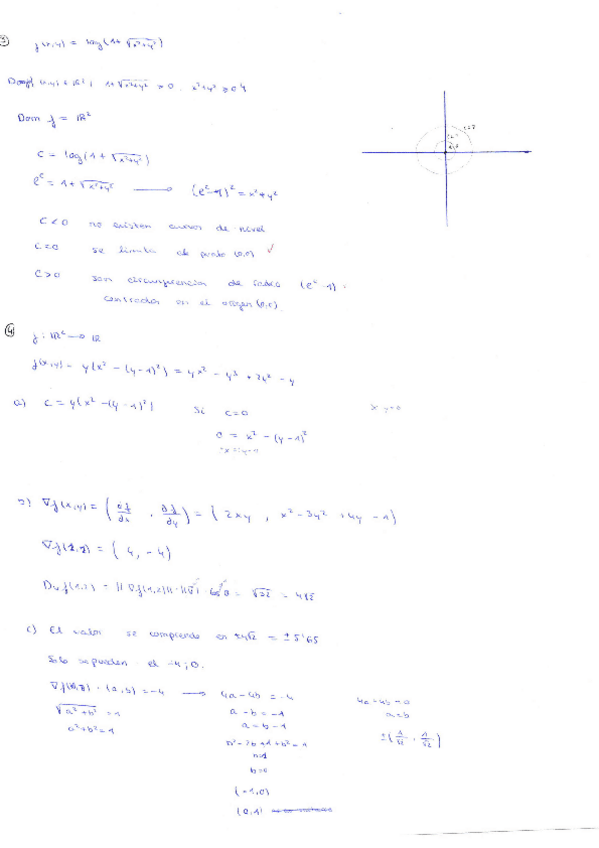 ③ f(x,y) = log(1+√x²+y²)
Dom f
1+√x²+y² > 0
Dom f = ℝ²
c = log(1+√x²+y²)
e^c = 1+√x²+y² → (e^c-1)² = x²+y²
c<0 no existen curvas de nivel
c=0 se limita al punto (0,0)
c>0 son circunferencias de radio (e^c-1)
centradas en el origen (0,0)
④ f: ℝ² → ℝ
f(x,y) = y(x²-(y-1)²) = yx² - y³ + 2y² - y
a) c = y(x²-(y-1)²) Si c=0
0 = x² - (y-1)²
∇f(x,y) = (∂f/∂x , ∂f/∂y) = (2xy , x²-3y²+4y-1)
∇f(1,2) = (4,-4)
Duf(1,2) = ||∇f(1,2)|| · = √32 = 4√2
c) El valor se comprende en ±4√2 = ±5'65
Solo se pueden el -4; 0.
· (a,b) = -4 → 4a-4b = -4 4a-4b=0
√a²+b² = 1 a-b = -1 a=b
a²+b²=1 a = b-1 ±(1/√2 , 1/√2)
b²-2b+1+b²=1
b=0
(-1,0)
(0,1)